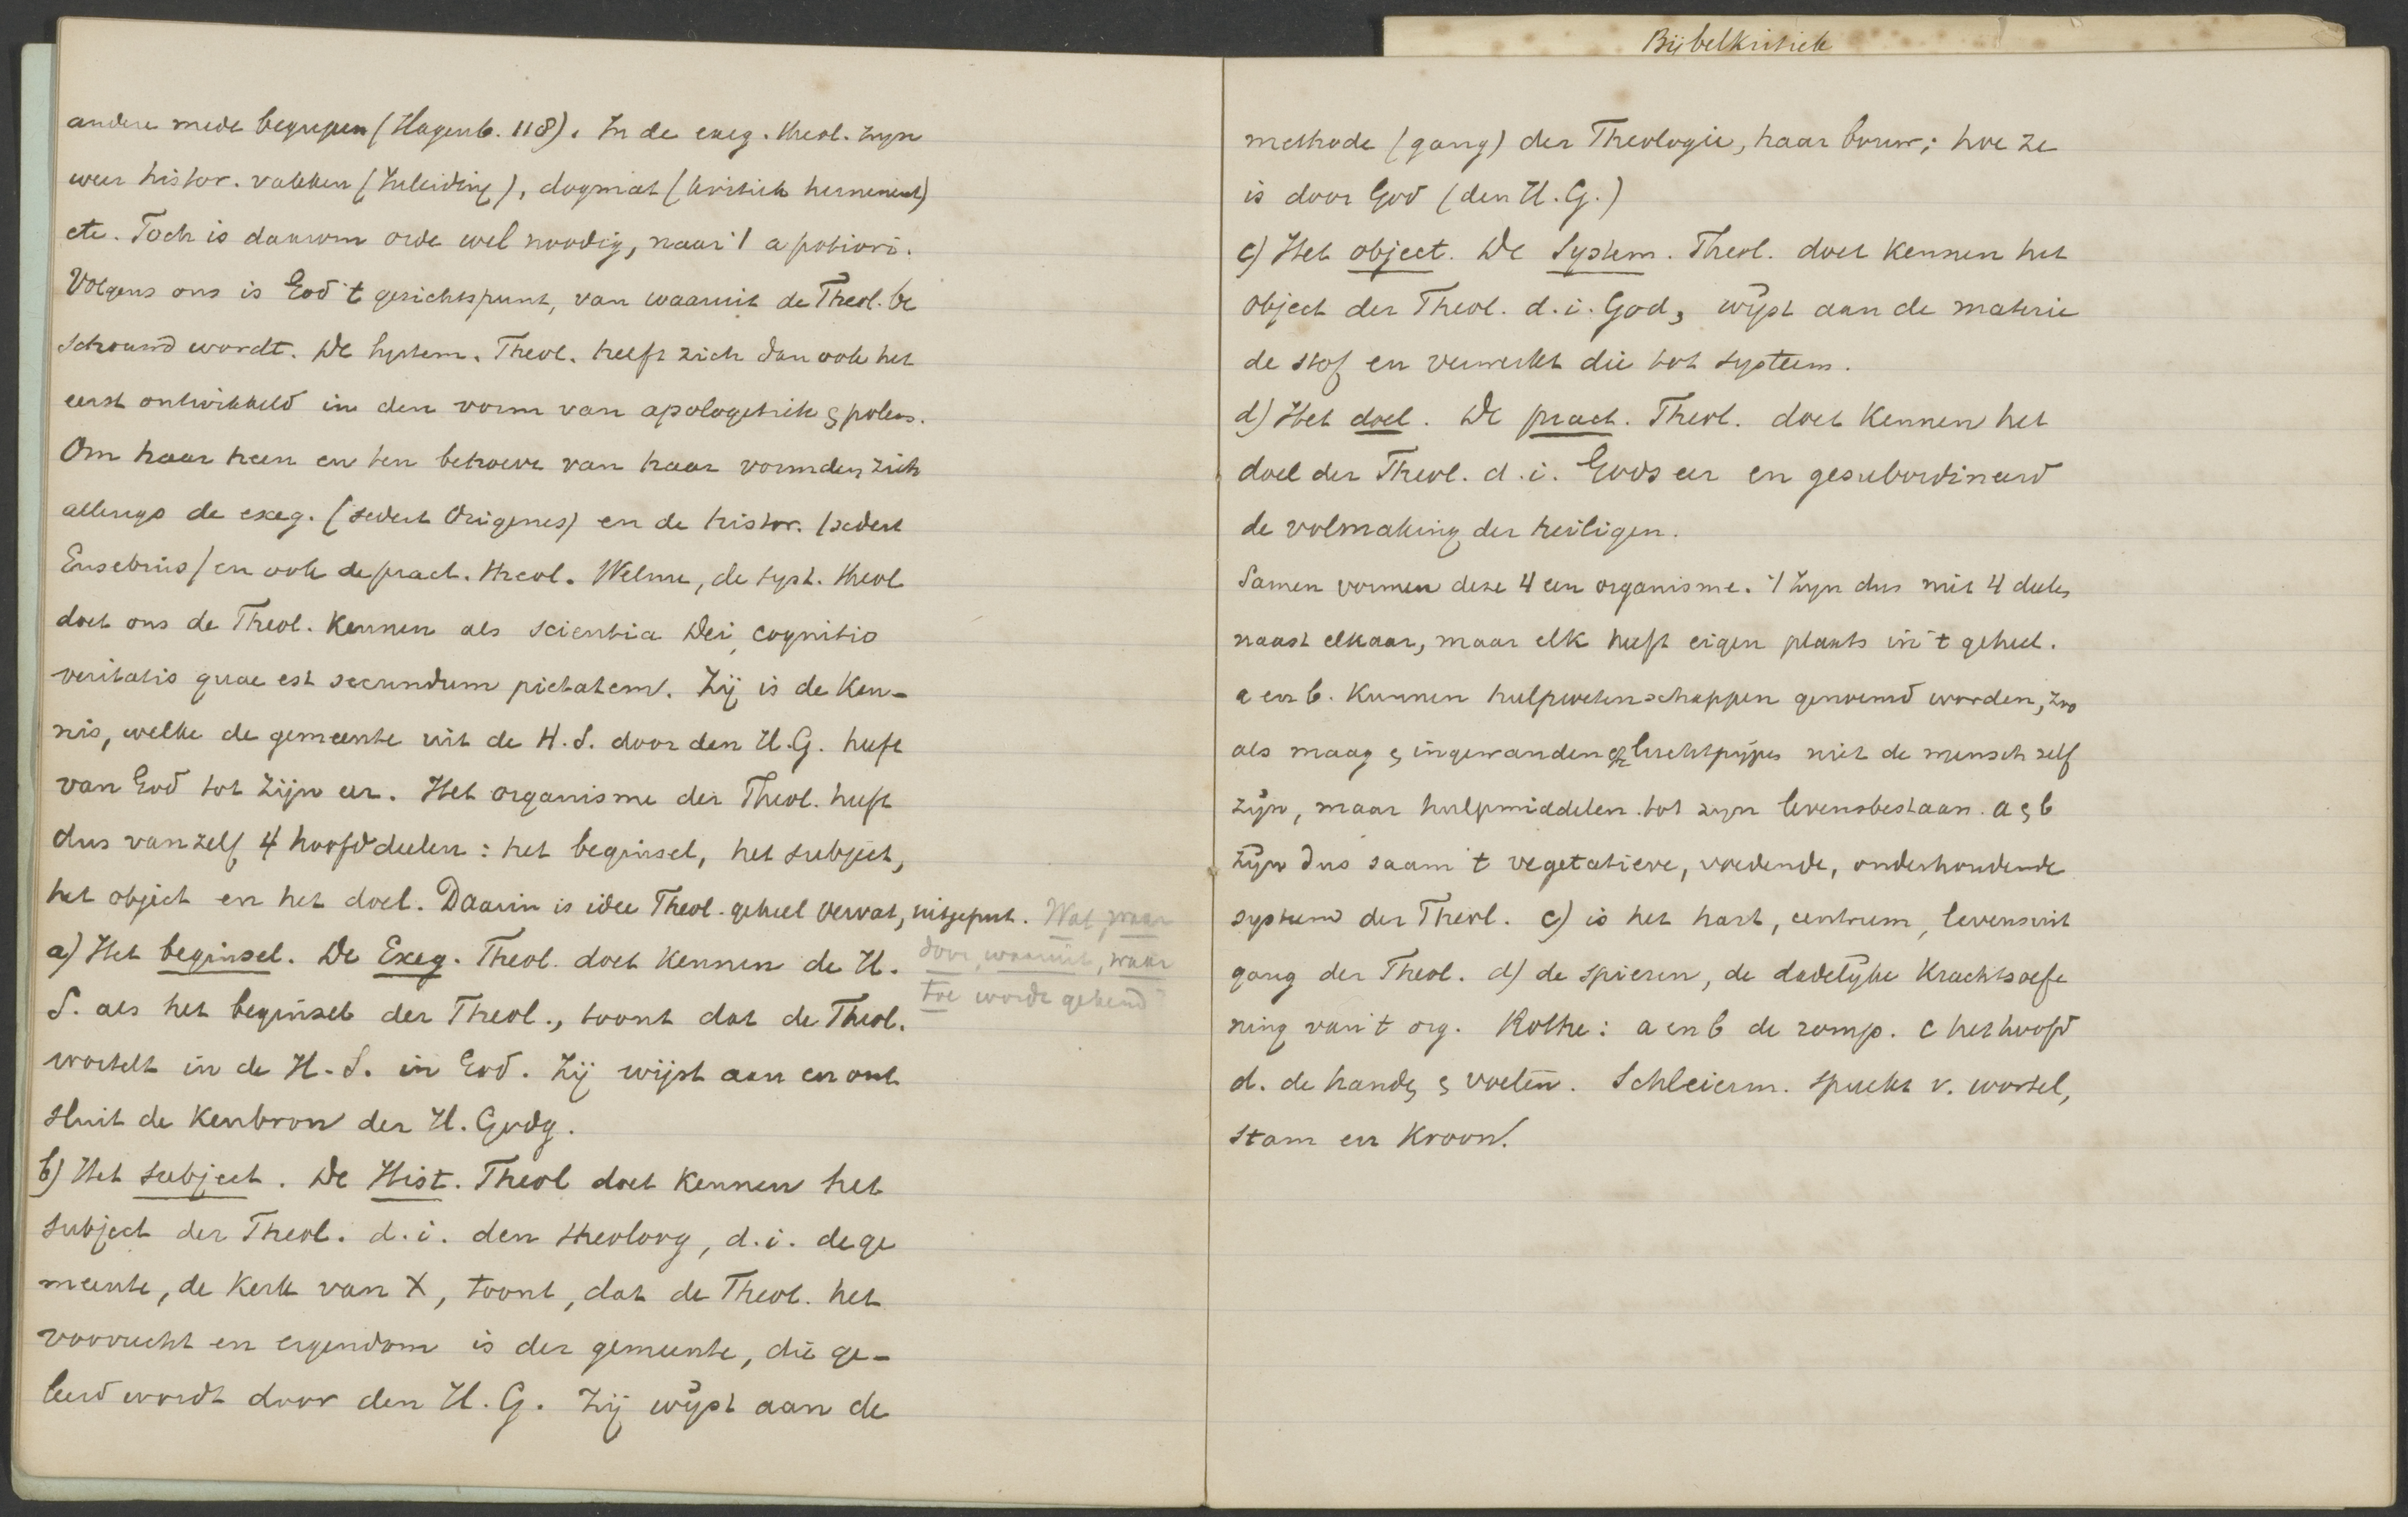 andere mede begrepen (Hagenb. 118). In de exeg. theol. zijn
weer histor. vakken (Inleiding), dogmat (kritiek hermeneut)
etc. Toch is daarom orde wel noodig, naar 't a potiori.
Volgens ons is God 't gezichtspunt, van waaruit de Theol. be
schouwd wordt. De System. Theol. heeft zich dan ook het
eerst ontwikkeld in den vorm van apologetiek & polem.
Om haar heen en ten behoeve van haar vormden zich
allengs de exeg. (sedert Origenes) en de histor. (sedert
Eusebius) en ook de pract. theol. Welnu, de syst. theol
doet ons de Theol. kennen als scientia Dei, cognitio
veritatis quae est secundum pietatem. Zij is de ken-
nis, welke de gemeente uit de H.S. door den H.G. heeft
van God tot zijn eer. Het organisme der Theol. heeft
dus vanzelf 4 hoofddeelen: het beginsel, het subject,
het object en het doel. Daarin is idee Theol. geheel vervat, uitgeput. Wat, waar
door, waaruit, waar
toe worde gekend?
a) Het beginsel. De Exeg. Theol. doet kennen de H.
S. als het beginsel der Theol., toont dat de Theol.
wortelt in de H.S. in God. Zij wijst aan en ont
sluit de kenbron der H. Godg.
b) Het subject. De Hist. Theol doet kennen het
subject der Theol. d.i. den theoloog, d.i. de ge
meente, de kerk van X, toont, dat de Theol. het
voorrecht en eigendom is der gemeente, die ge-
leerd wordt door den H.G. Zij wijst aan de
Bijbelkritiek
methode (gang) der Theologie, haar bouw; hoe ze
is door God (den H.G.)
c) Het object. De System. Theol. doet kennen het
object der Theol. d.i. God, wijst aan de materie
de stof en verwerkt die tot systeem.
d) Het doel. De pract. Theol. doet kennen het
doel der Theol. d.i. Gods eer en gesubordineerd
de volmaking der heiligen.
Samen vormen deze 4 een organisme. 't Zijn dus niet 4 deelen
naast elkaar, maar elk heeft eigen plaats in 't geheel.
a en b. kunnen hulpwetenschappen genoemd worden, zoo
als maag & ingewanden & luchtpijpen niet de mensch zelf
zijn, maar hulpmiddelen tot zijn levensbestaan. a & b
zijn dus saam 't vegetatieve, voedende, onderhoudende
systeem der Theol. c) is het hart, centrum, levensuit
gang der Theol. d) de spieren, de dadelijke krachtsoefe
ning van 't org. Rothe: a en b de romp. c het hoofd
d. de handen & voeten. Schleierm. spreekt v. wortel,
stam en kroon.